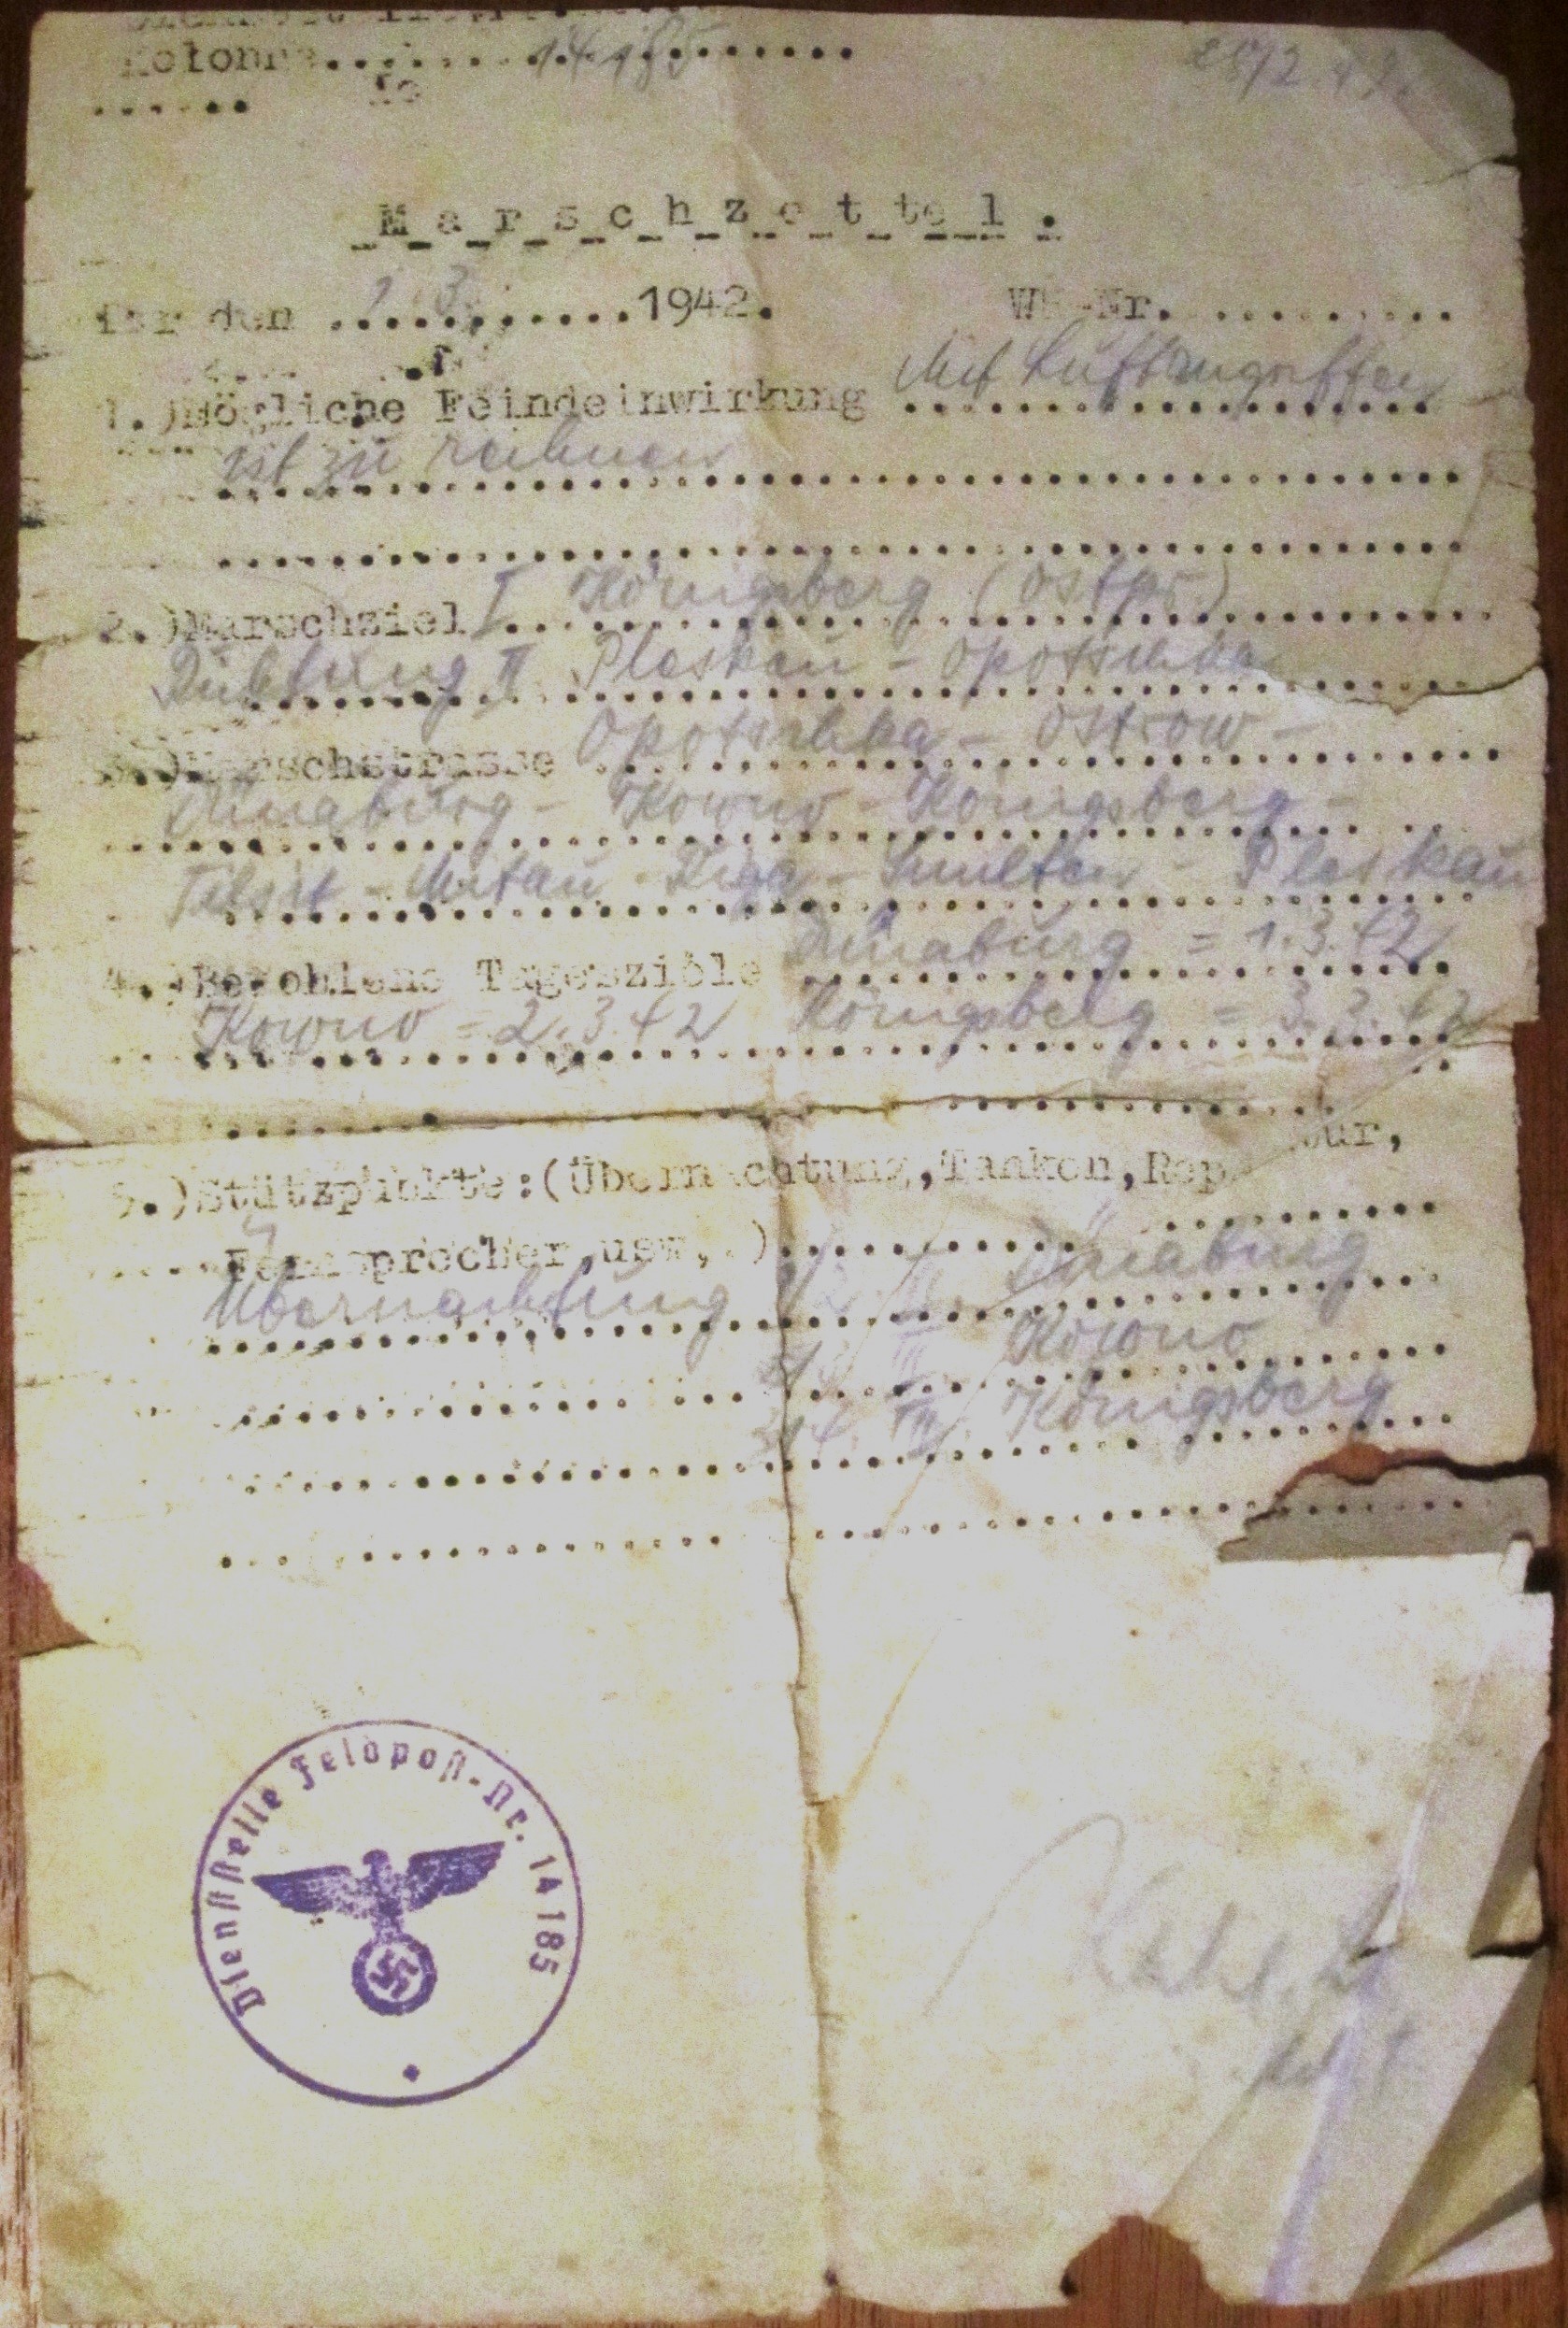 Kolonne.......14185........
M_a_r_s_c_h_z_e_t_te_l_.
für den ...1.3.......1942. WH-Nr. .........
1.)Mögliche Feindeinwirkung Mit Luftangriffen
ist zu rechnen
2.)Marschziel I Königsberg (Ostpr.)
Richtung II Pleskau - Opotschka
3.)Marschstrasse Opotschka - Ostrow -
Dünaburg - Kowno - Königsberg -
Tilsit - Mitau - Riga - Smilten - Pleskau
4.)Befohlene Tagesziele Dünaburg = 1.3.42
Kowno = 2.3.42 Königsberg = 3.3.42
5.)Stützpunkte:(Übernachtung,Tanken,Reparatur,
Fernsprecher,usw,.)..........
Übernachtung 1/2. III. Dünaburg
III Kowno
3/4. III. Königsberg
Dienststelle Feldpost-Nr. 14185